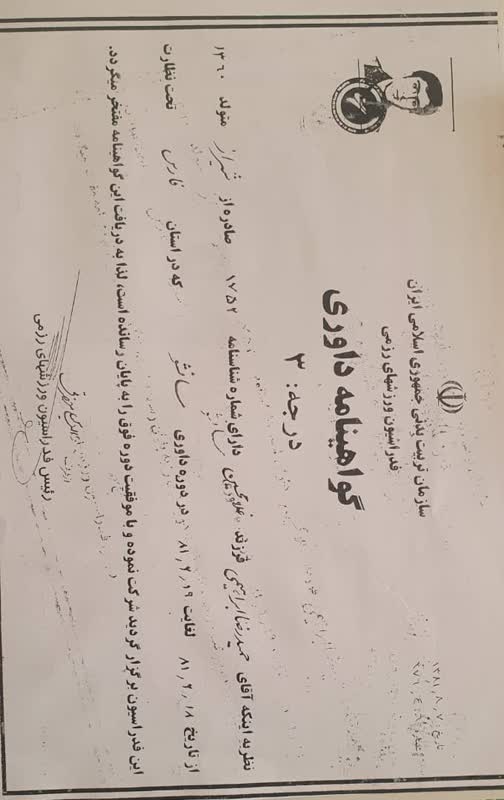 سازمان تربیت بدنی جمهوری اسلامی ایران
فدراسیون ورزشهای رزمی
تاریخ ۱۳۸۱٫۸٫۷
گواهینامه داوری
درجه: ۳
نظر به اینکه آقای حمیدرضا ابراهیمی فرزند دارای شماره شناسنامه ۱۷۵۲ صادره از شیراز متولد ۱۳۶۰
از تاریخ ۸۱٫۲٫۱۸ لغایت ۸۱٫۲٫۱۹ در دوره داوری سانشو که در استان فارس تحت نظارت
این فدراسیون برگزار گردید شرکت نموده و با موفقیت دوره فوق را به پایان رسانده است، لذا به دریافت این گواهینامه مفتخر میگردد.
رئیس فدراسیون ورزشهای رزمی